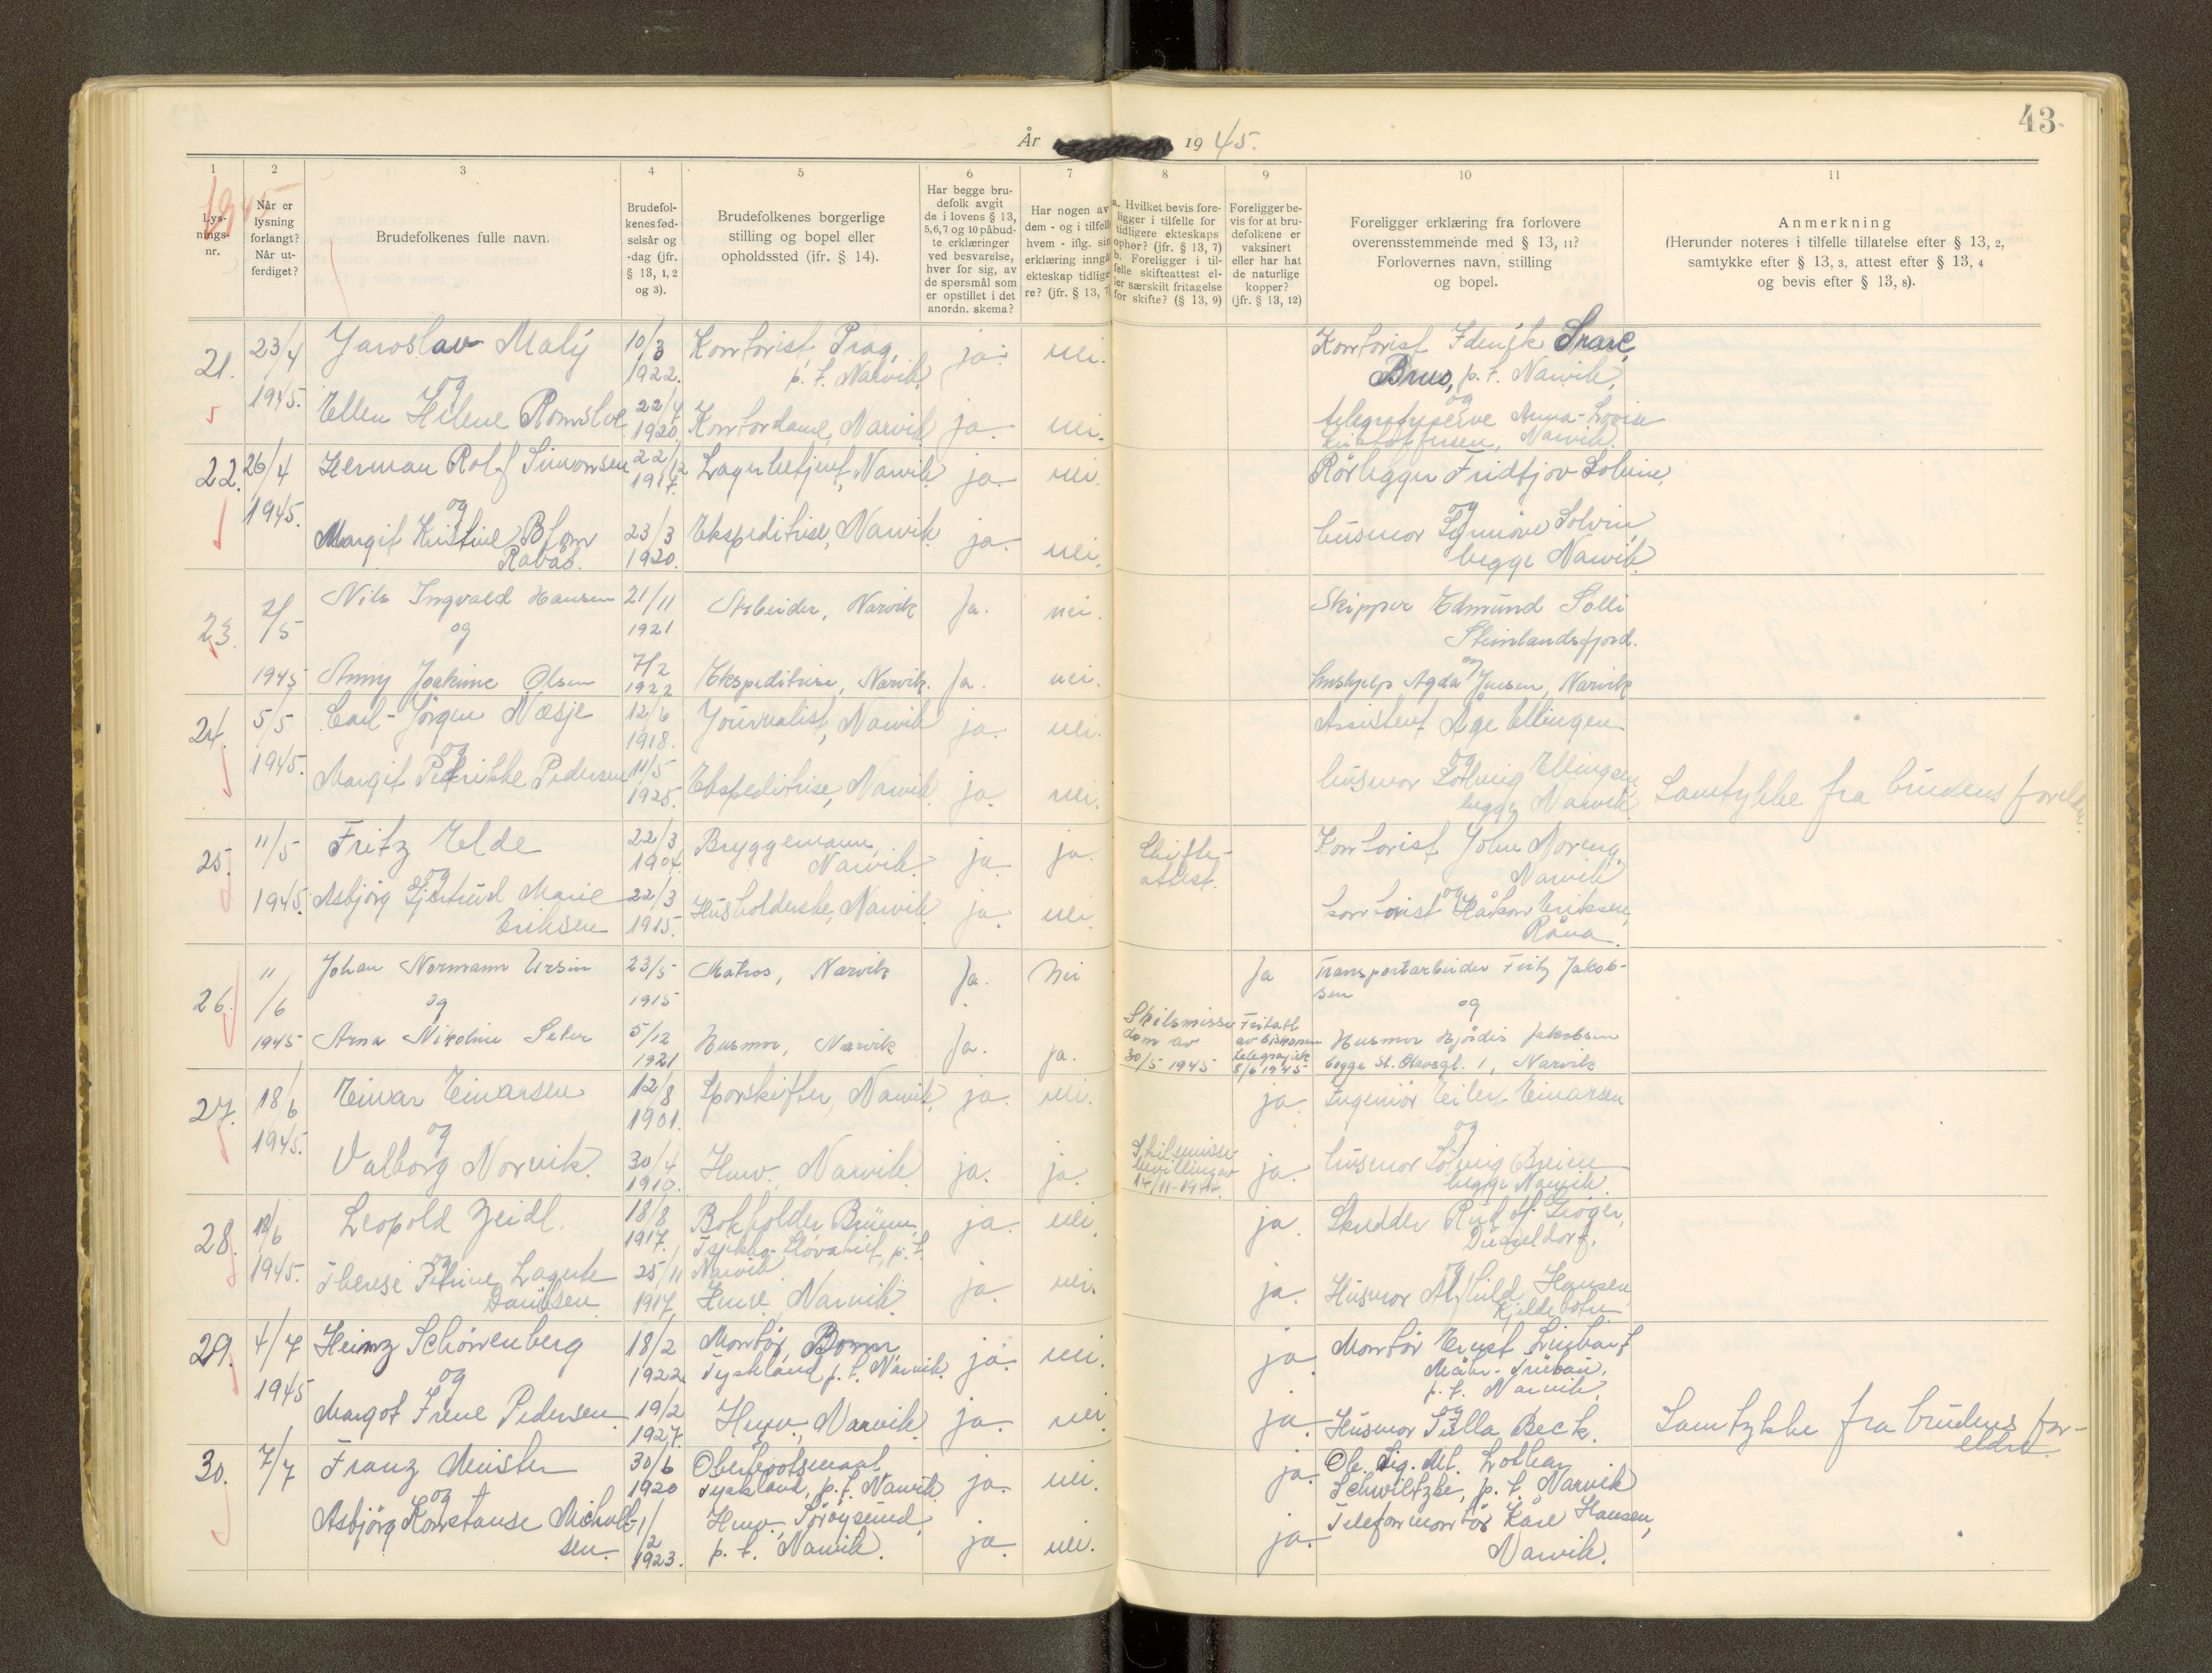 43.
År 1945.
1 2 3 4 5 6 7 8 9 10 11
1945
Lys-
nings-
nr.
Når er
lysning
forlangt?
Når ut-
ferdiget?
Brudefolkenes fulle navn.
Brudefol-
kenes fød-
selsår og
-dag (jfr.
§ 13, 1, 2
og 3).
Brudefolkenes borgerlige
stilling og bopel eller
opholdssted (jfr. § 14).
Har begge bru-
defolk avgit
de i lovens § 13,
5, 6, 7 og 10 påbud-
te erklæringer
ved besvarelse,
hver for sig, av
de spørsmål som
er opstillet i det
anordn. skema?
Har nogen av
dem - og i tilfelle
hvem - iflg. sin
erklæring inngå
ekteskap tidlige-
re? (jfr. § 13, 7)
a. Hvilket bevis fore-
ligger i tilfelle for
tidligere ekteskaps
ophør? (jfr. § 13, 7)
b. Foreligger i til-
felle skifteattest el-
ler særskilt fritagelse
for skifte? (§ 13, 9)
Foreligger be-
vis for at bru-
defolkene er
vaksinert
eller har hat
de naturlige
kopper?
(jfr. § 13, 12)
Foreligger erklæring fra forlovere
overensstemmende med § 13, 11?
Forlovernes navn, stilling
og bopel.
Anmerkning
(Herunder noteres i tilfelle tillatelse efter § 13, 2,
samtykke efter § 13, 3, attest efter § 13, 4
og bevis efter § 13, 8).
21. 23/4 1945.
Jaroslav Malý 10/3 1922. Kontorist, Prag, p. t. Narvik. ja. nei.
og
Ellen Helene 22/4 1920 Kontordame, Narvik ja. nei.
Kontorist
p. t. Narvik,
og
Anna-Lovise
Kristoffersen, Narvik.
22. 26/4 1945.
Herman Rolf Simonsen 22/12 Lagerbetjent, Narvik ja. nei.
og
Margit Kristine Blom 23/3 1920. Ekspeditrise, Narvik. ja. nei.
Rørlegger Fridtjov
og
husmor Solvin,
begge Narvik.
23. 2/5 1945
Nils Ingvald Hansen 21/11 1921 Arbeider, Narvik Ja. nei.
og
Anny Joakime Olsen 7/2 1922 Ekspeditrise, Narvik. Ja. nei.
Skipper Edmund Solli
Steinlandsfjord.
og
Hushjelp Agda Jensen, Narvik
24. 5/5 1945.
Carl-Jörgen Næsje 12/6 1918. Journalist, Narvik ja. nei.
og
Margit Petrikke Pedersen 11/5 1925. Ekspeditrise, Narvik. ja. nei.
Assistent Åge Ellingsen
og
husmor Solveig Ellingsen,
begge Narvik.
Samtykke fra brudens foreldre.
25. 11/5 1945.
Fritz Elde 22/3 1904. Bryggemann, Narvik. ja. ja. Skifte-
attest.
og
Asbjörg Gjertrud Marie
Eriksen 22/3 1915. Husholderske, Narvik ja. nei.
Kontorist John Noreng,
Narvik
og
kontorist Håkon Eriksen,
Råna.
26. 11/6 1945
Johan Normann Ursin 23/5 1915 Matros, Narvik Ja. Nei Ja
og
Arna Nikoline 5/12 1921 Husmor, Narvik Ja. ja.
Skilsmisse
dom av
30/5 1945
Fritatt
av biskopen
telegrafisk
8/6 1945
Transportarbeider Fritz Jakob-
sen
og
Husmor Hjördis Jakobsen
begge St. Olavsgt. 1, Narvik
27. 18/6 1945.
Einar Einarsen 12/8 1901. Sporskifter, Narvik. ja. nei. ja.
og
Valborg Norvik. 30/4 1910. Husv. Narvik. ja. ja. ja.
Skilsmisse-
bevilling av
Ingeniör Eilert Einarsen
og
husmor Solveig Breien
begge Narvik.
28. 18/6 1945.
Leopold Zeidl. 18/8 1917. Bokholder, Brünn,
Tsjekko-Slovakiet, p. t.
Narvik ja. nei. ja.
og
Therese Petrine
25/11 1917. Husv. Narvik. ja. nei. ja.
Skredder
Düsseldorf.
og
Husmor Hansen,
Kjeldebotn
29. 4/7 1945
Heinz Schönenberg 18/2 1922 Montör, Bonn
Tyskland, p. t. Narvik. ja. nei. ja.
og
Margot Irene Pedersen 19/2 1927. Husv., Narvik. ja. nei ja.
Montör Ernst
Mähr-Trübau,
p. t. Narvik,
og
Husmor Tulla Beck.
Samtykke fra brudens for-
eldre.
30. 7/7
Franz Meister 30/6 1920 Oberbootsmaat
Tyskland, p. t. Narvik. ja. nei. ja.
og
Asbjörg Konstanse Michalt-
sen. 1/2 1923. Husv., Söröysund,
p. t. Narvik. ja. nei. ja.
Ob. Sig. Mt. Lothar
Schwiltzke, p. t. Narvik
Telefonmontör Kåre Hansen,
Narvik.